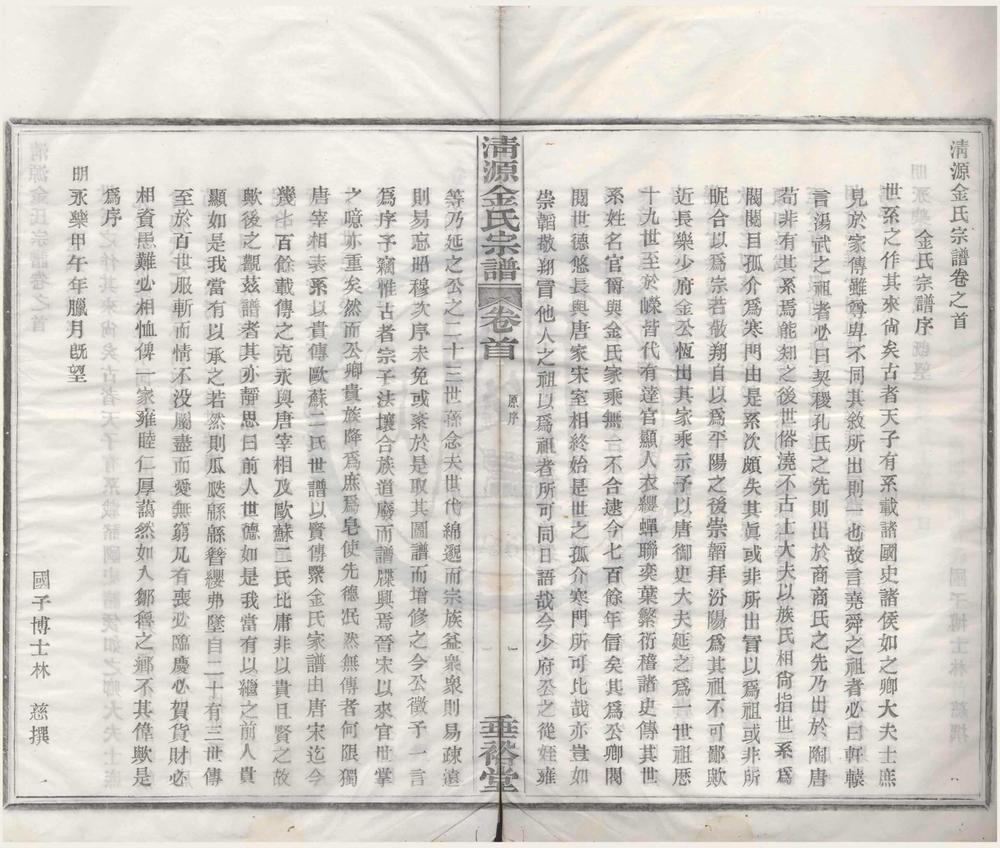 清源金氏宗譜卷之首
金氏宗譜序
世系之作其來尙矣古者天子有系載諸國史諸侯如之卿大夫士庶
見於家傳雖尊卑不同其敘所出則一也故言堯舜之祖者必曰軒轅
言湯武之祖者必曰契稷孔氏之先則出於商商氏之先乃出於陶唐
苟非有其系焉能知之後世俗澆不古士大夫以族氏相尙指世系爲
閥閱目孤介爲寒門由是系次頗失其眞或非所出冒以爲祖或非所
昵合以爲宗若敬翔自以爲平陽之後崇韜拜汾陽爲其祖不可鄙歟
近長樂少府金公恆出其家乘示予以唐御史大夫延之爲一世祖歷
十九世至於嶸當代有達官顯人衣纓蟬聯奕葉繁衍稽諸史傳其世
系姓名官爵與金氏家乘無一不合逮今七百餘年信矣其爲公卿閥
閱世德悠長與唐家宋室相終始是世之孤介寒門所可比哉亦豈如
崇韜敬翔冒他人之祖以爲祖者所可同日語哉今少府公之從姪雍
清源金氏宗譜 卷首 原序 一 垂裕堂
等乃延之公之二十三世孫念夫世代綿邈而宗族益衆衆則易疎遠
則易忘昭穆次序未免或紊於是取其圖譜而增修之今公徵予一言
爲序予竊惟古者宗子法壞合族道廢而譜牒興焉晉宋以來官世掌
之噫亦重矣然而公卿貴族降爲庶爲皂使先德泯然無傳者何限獨
唐宰相表系以貴傳歐蘇二氏世譜以賢傳緊金氏家譜由唐宋迄今
幾七百餘載傳之克永與唐宰相及歐蘇二氏比庸非以貴且賢之故
歟後之觀茲譜者其亦靜思曰前人世德如是我當有以繼之前人貴
顯如是我當有以承之若然則瓜瓞緜緜簪纓弗墜自二十有三世傳
至於百世服斬而情不没屬盡而愛無窮凡有喪必臨慶必賀貨財必
相資患難必相恤俾一家雍睦仁厚藹然如入鄒魯之鄉不其偉歟是
爲序
明永樂甲午年臘月旣望
國子博士林 慈撰